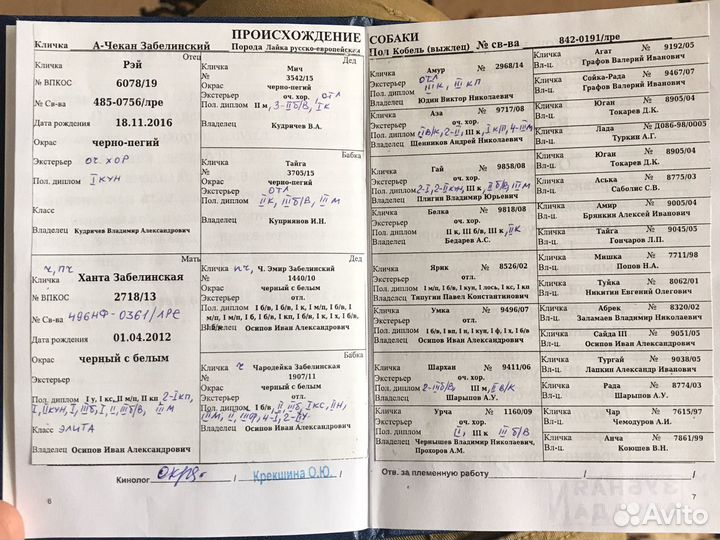 ПРОИСХОЖДЕНИЕ СОБАКИ
Кличка А-Чекан Забелинский Порода Лайка русско-европейская Пол Кобель (выжлец) № св-ва 842-0191/лре
Отец
Кличка Рэй
№ ВПКОС 6078/19
№ Св-ва 485-0756/лре
Дата рождения 18.11.2016
Окрас черно-пегий
Экстерьер оч. хор
Пол. диплом I кун
Класс
Владелец Кудричев Владимир Александрович
Мать
ч, пч
Кличка Ханта Забелинская
№ ВПКОС 2718/13
№ Св-ва 496НФ-0361/лре
Дата рождения 01.04.2012
Окрас черный с белым
Экстерьер
Пол. диплом I у, I кс, II м/п, II кп 2-I кп,
I, II кун, I, III б, I, II, III б/в, III м
Класс элита
Владелец Осипов Иван Александрович
Дед
Кличка Мич
№ 3542/15
Окрас черно-пегий
Экстерьер оч. хор. отл
Пол. диплом II м, 3-II б/в, I к
Владелец Кудричев В.А.
Бабка
Кличка Тайга
№ 3705/15
Окрас черно-пегий
Экстерьер отл
Пол. диплом II к, III б/в, III м
Владелец Куприянов И.Н.
Дед
Кличка пч, Ч. Эмир Забелинский
№ 1440/10
Окрас черный с белым
Экстерьер отл.
Пол. диплом I б/в, I б/в, I к, I м/п, I б/в, I
м/п, I м/п, I б, I кп, I б/в, I б/в, I б/в,
I б/в
Владелец Осипов Иван Александрович
Бабка
Кличка ч Чародейка Забелинская
№ 1907/11
Окрас черный с белым
Экстерьер отл.
Пол. диплом I б/в, II, III б, I кс, II н,
Владелец Осипов Иван Александрович
Кличка Амур № 2968/14
Экстерьер отл
Пол. диплом III к, III кп
Владелец Юдин Виктор Николаевич
Кличка Аза № 9717/08
Экстерьер оч. хор.
Пол. диплом II в/к, 2-II, III к, I кп, 4-III м
Владелец Щенников Андрей Николаевич
Кличка Гай № 9858/08
Экстерьер оч. хор.
Пол. диплом 2-I, 2-II кун, III к, II б/в, III м
Владелец Плигин Владимир Юрьевич
Кличка Белка № 9818/08
Экстерьер оч. хор.
Пол. диплом II к, III б/в, III к, II к
Владелец Бедарев А.С.
Кличка Ярик № 8526/02
Экстерьер отл.
Пол. диплом I б/в, I к, I вп, I кун, I лось, I кс, I кп
Владелец Типугин Павел Константинович
Кличка Умка № 9496/07
Экстерьер отл.
Пол. диплом I б/в, I вп, I у, I кун, I ф, I х, I б/в
Владелец Осипов Иван Александрович
Кличка Шархан № 9411/06
Экстерьер оч. хор.
Пол. диплом 2-III б/в, III м, II в/к
Владелец Шарыпов А.У.
Кличка Урча № 1160/09
Экстерьер оч. хор.
Пол. диплом II, III к III б/в
Владелец Чернышев Владимир Николаевич,
Прохоров А.М.
Кличка Агат № 9192/05
Вл-ц. Графов Валерий Иванович
Кличка Сойка-Рада № 9467/07
Вл-ц. Графов Валерий Иванович
Кличка Юган № 8905/04
Вл-ц. Токарев Д.К.
Кличка Лада № Д086-98/0005
Вл-ц. Туркин А.Г.
Кличка Юган № 8905/04
Вл-ц. Токарев Д.К.
Кличка Аська № 8775/03
Вл-ц. Саболис С.В.
Кличка Амир № 9005/04
Вл-ц. Брянкин Алексей Иванович
Кличка Тайга № 9045/05
Вл-ц. Гончаров Л.П.
Кличка Мишка № 7711/98
Вл-ц. Попов Н.А.
Кличка Туйка № 8062/01
Вл-ц. Никитин Евгений Олегович
Кличка Абрек № 8320/02
Вл-ц. Заламаев Владимир Николаевич
Кличка Сайда III № 9051/05
Вл-ц. Осипов Иван Александрович
Кличка Тургай № 9038/05
Вл-ц. Лапкин Александр Иванович
Кличка Рада № 8774/03
Вл-ц. Шарыпов А.У.
Кличка Чар № 7615/97
Вл-ц. Чемодуров А.И.
Кличка Анча № 7861/99
Вл-ц. Коюшев В.Н.
Кинолог / Крекшина О.Ю. /
Отв. за племенную работу / /
6
7
Avito